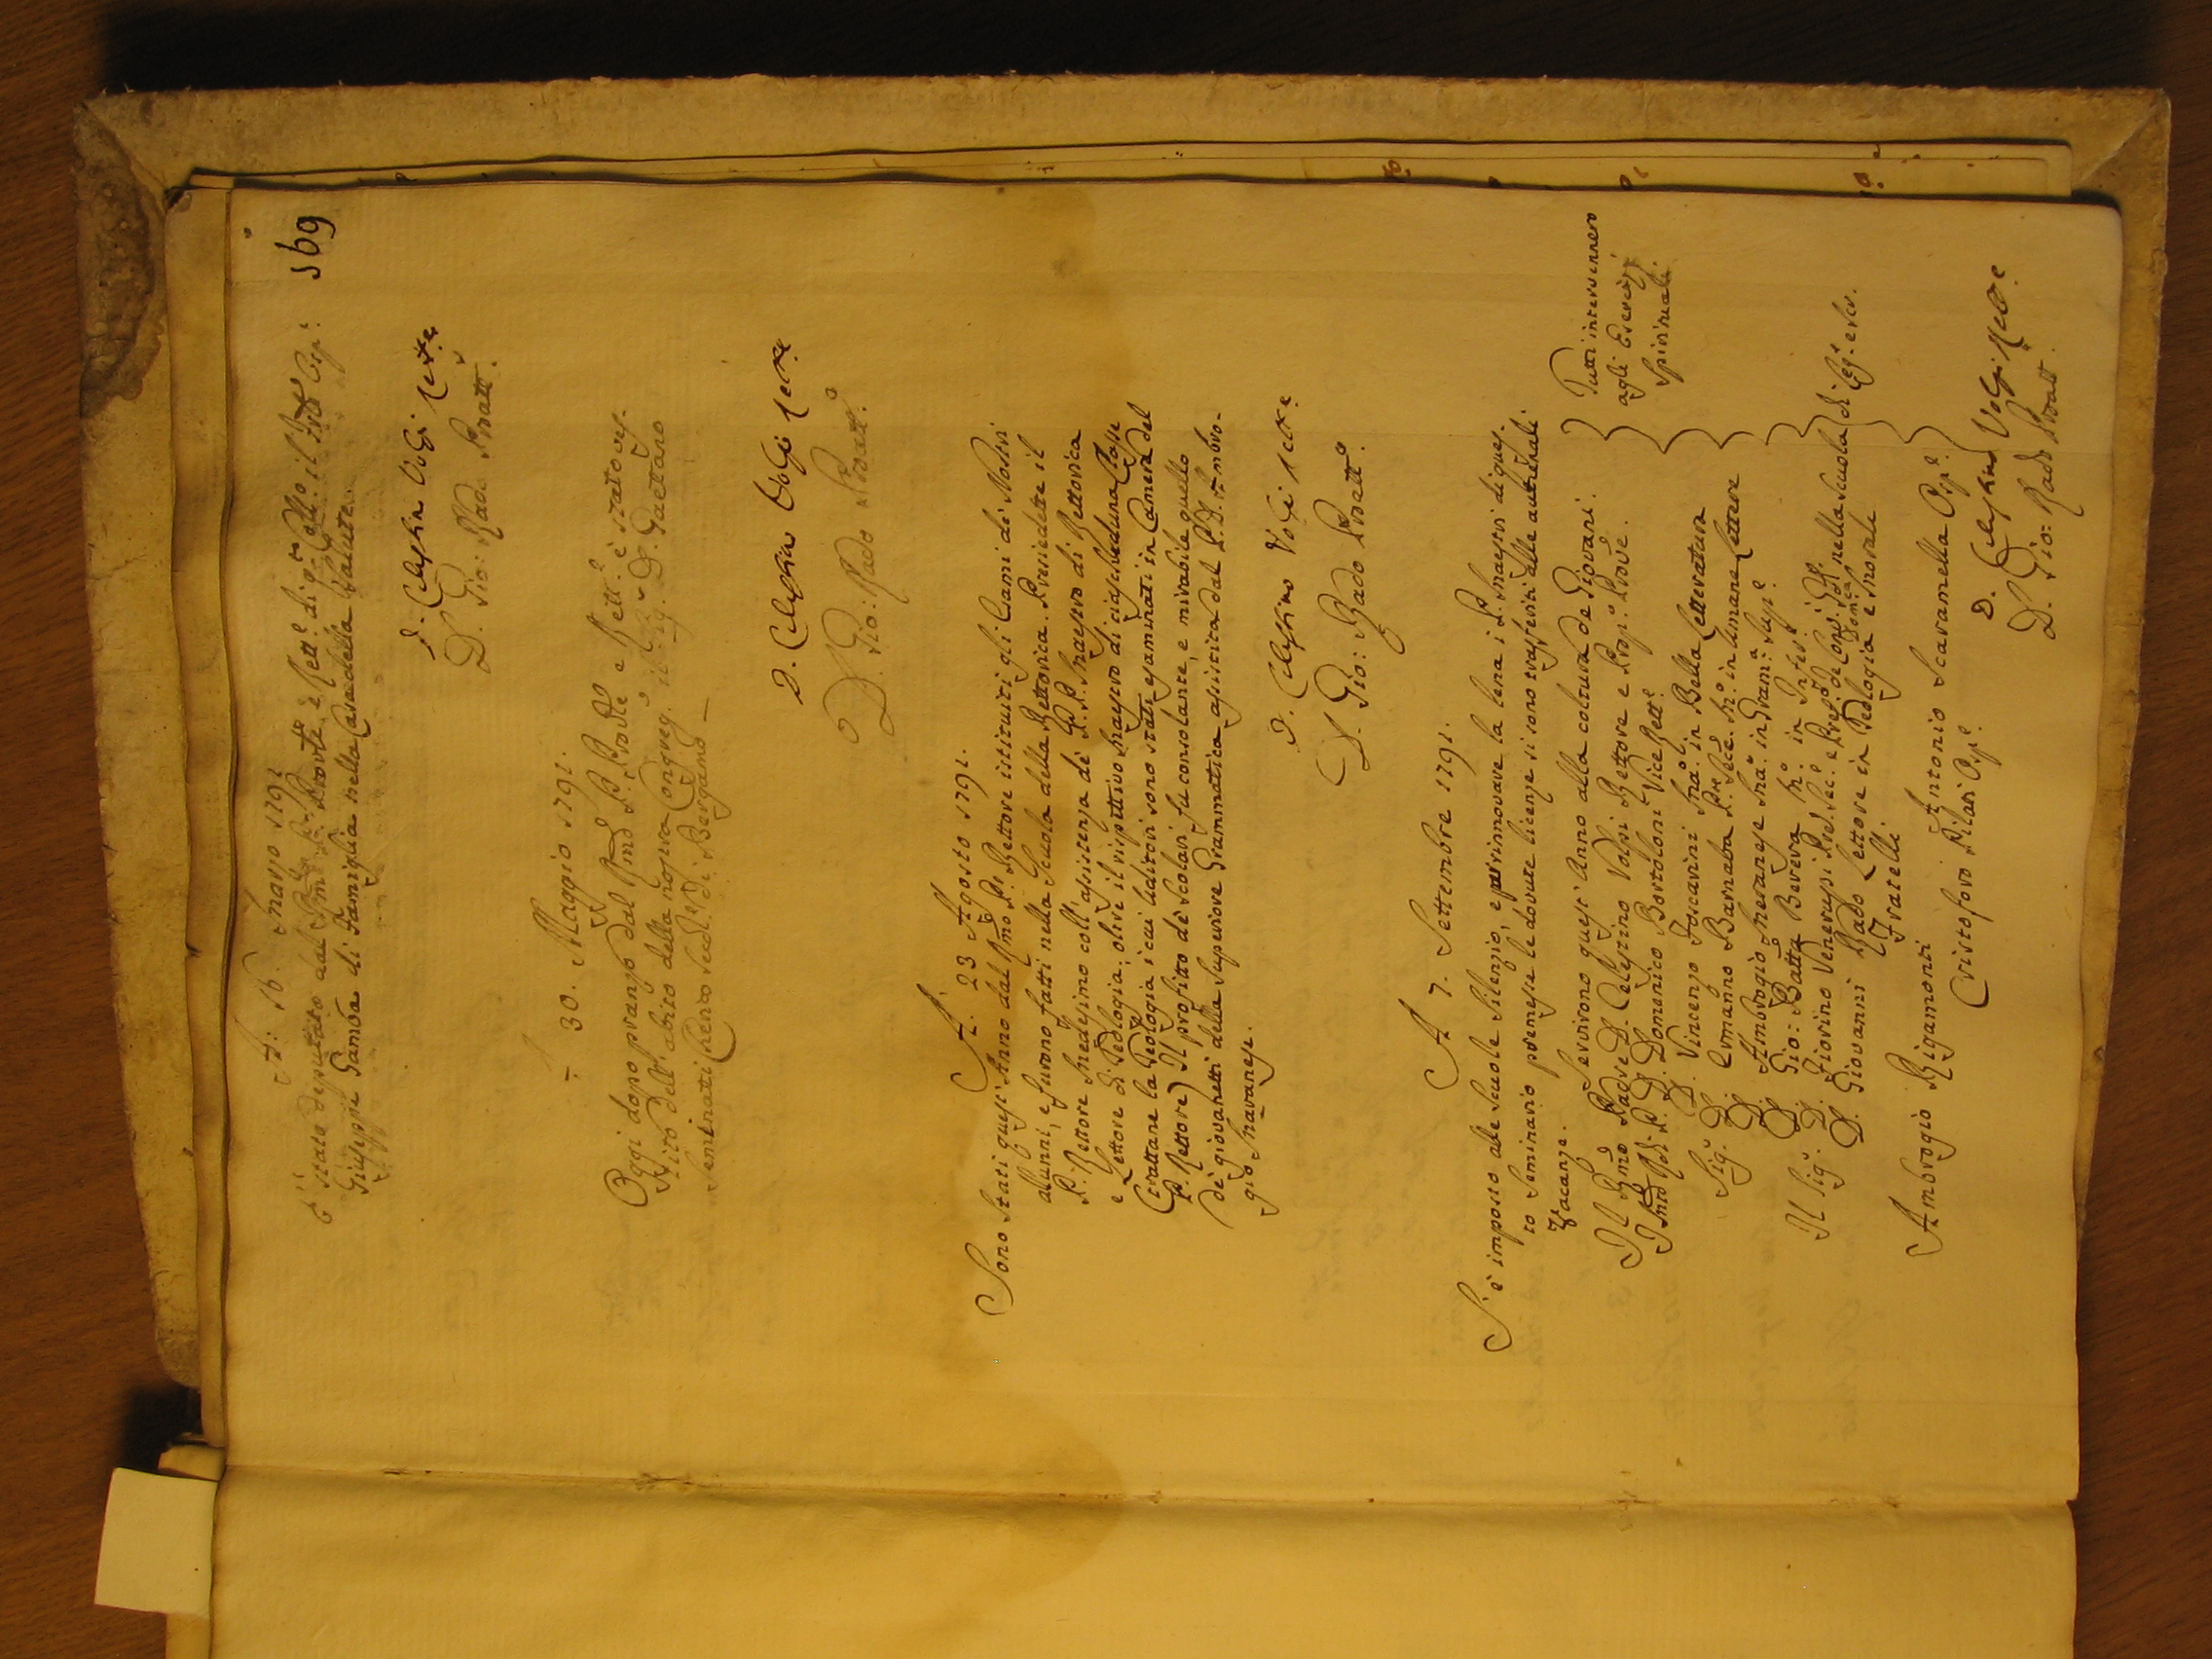 369
A: 16. Marzo 1791
È stato deputato dal Rmo P. Provle e Rett.e di q.to Coll.o il Frlo Osp.e
Giuseppe Gamba di Famiglia nella Casa della Salute.
D. Celestino Volpi Rett.e
D. Gio: Rado Proatt.o
A 30. Maggio 1791.
Oggi dopo pranzo dal Rmo P. Provle e Rett.e è stato ves-
tito dell' abito della nostra Congreg.e il Sig.r D. Gaettano
Seminati Cherico Secol.e di Bergamo
D. Celestino Volpi Rett.e
D. Gio: Rado Proatt.o
A. 23 Agosto 1791.
Sono stati quest' Anno dal Rmo P. Rettore istituiti gli Esami di Nostri
alunni, e furono fatti nella Scuola della Rettorica. Presiedette il
P. Rettore Medesimo coll' assistenza de P.P. Maestro di Rettorica
e Lettore di Teologia; oltre il rispettivo Maestro di ciascheduna Classe
(trattane la Teologia i cui Uditori sono stati esaminati in Camera del
P. Rettore) Il profitto dè Scolari fu consolante, e mirabile quello
dè giovanetti della Superiore Grammatica assistita dal P. D. Ambro-
gio Maranese.
D. Celestino Volpi Rett.e
D. Gio: Rado Proatt.o
A 7. Settembre 1791.
S' è imposto alle Scuole Silenzio, e per rinnovare la lena i P. Maestri di ques-
to Seminario premesse le dovute licenze si sono trasferiti alle autunnali
Vacanze. Servirono quest' Anno alla coltura de Giovani.
Il Rmo Padre D. Celestino Volpi Rettore e Prop.o Prove.
Tutti intervennero
agli Esercizj
Spirituali.
D. Domenico Bortoloni Vice Rett.e
D. Vincenzo Foscarini Mro. in Bella Letteratura
Sig.r D. Ermanno Barnaba Pre Sece. Mro. in Umane Lettere
D. Ambrogio Maranese Mro. in Gram.a Sup.e
D. Gio: Batta Beüera Mro. in Infer.e
Il Sig.r D. Fiorino Venerupi nella Scuola di Leg.e e Scr.
D. Giovanni Rado Lettore in Teologia e Morale
Fratelli
Ambrogio Rigamonti Antonio Scaramella Osp.e
Cristoforo Pilari Osp.e
D. Celestino Volpi Rett.e
D. Gio: Rado Proatt.